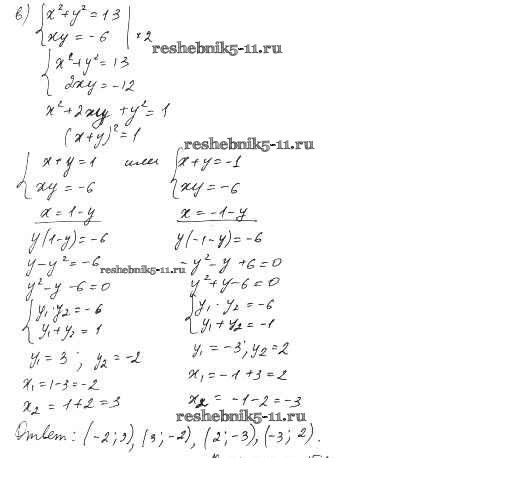 в) { x² + y² = 13
xy = -6 | · 2
reshebnik5-11.ru
{ x² + y² = 13
2xy = -12
x² + 2xy + y² = 1
(x + y)² = 1
reshebnik5-11.ru
{ x + y = 1 или { x + y = -1
xy = -6 xy = -6
x = 1 - y x = -1 - y
y(1 - y) = -6 y(-1 - y) = -6
y - y² = -6 reshebnik5-11.ru -y² - y + 6 = 0
y² - y - 6 = 0 y² + y - 6 = 0
{ y₁ · y₂ = -6 { y₁ · y₂ = -6
y₁ + y₂ = 1 y₁ + y₂ = -1
y₁ = 3 ; y₂ = -2 y₁ = -3 ; y₂ = 2
x₁ = 1 - 3 = -2 x₁ = -1 + 3 = 2
x₂ = 1 + 2 = 3 x₂ = -1 - 2 = -3
reshebnik5-11.ru
Ответ: (-2; 3), (3; -2), (2; -3), (-3; 2).